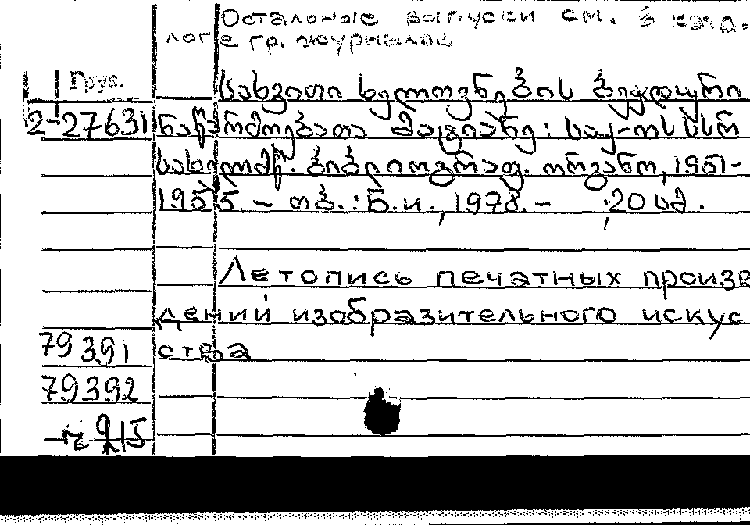 Остальные выпуски см. в ката-
логе гр. журналов
Груз.
2-27631
სახვითი ხელოვნების ბეჭდური
ნაწარმოებათა მატიანე: საქ-ოს სსრ
სახელმწ. ბიბლიოგრაფ. ორგანო, 1951-
1955 - თბ.: Б.и., 1978.- 20 სმ.
Летопись печатных произве
дений изобразительного искус
ства
79391
79392